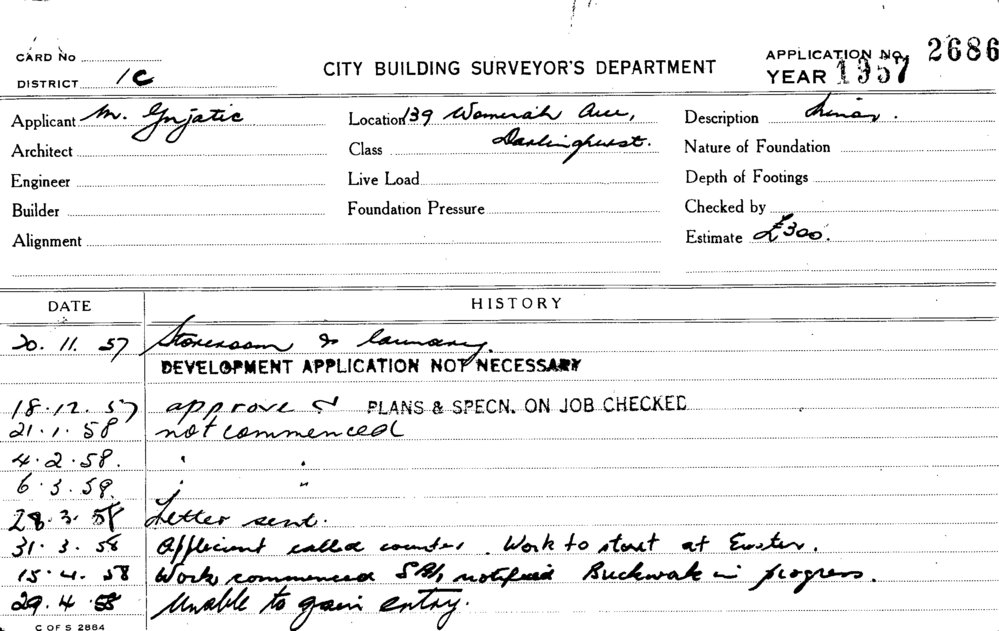 CARD No
DISTRICT 1C
CITY BUILDING SURVEYOR'S DEPARTMENT
APPLICATION No. 2686
YEAR 1957
Applicant M. Gnjatic
Location 139 Womerah Ave,
Description Minor.
Architect
Class Darlinghurst.
Nature of Foundation
Engineer
Live Load
Depth of Footings
Builder
Foundation Pressure
Checked by
Alignment
Estimate £300.
DATE HISTORY
20. 11. 57 Storeroom & laundry.
DEVELOPMENT APPLICATION NOT NECESSARY
18.12.57 approve PLANS & SPECN. ON JOB CHECKED
21.1.58 not commenced
4.2.58. " "
6.3.58. " "
28.3.58 Letter sent.
31.3.58 Applicant called counter. Work to start at Easter.
15.4.58 Work commenced notified Brickwork in progress.
29.4.58 Unable to gain entry.
C OF S 2884